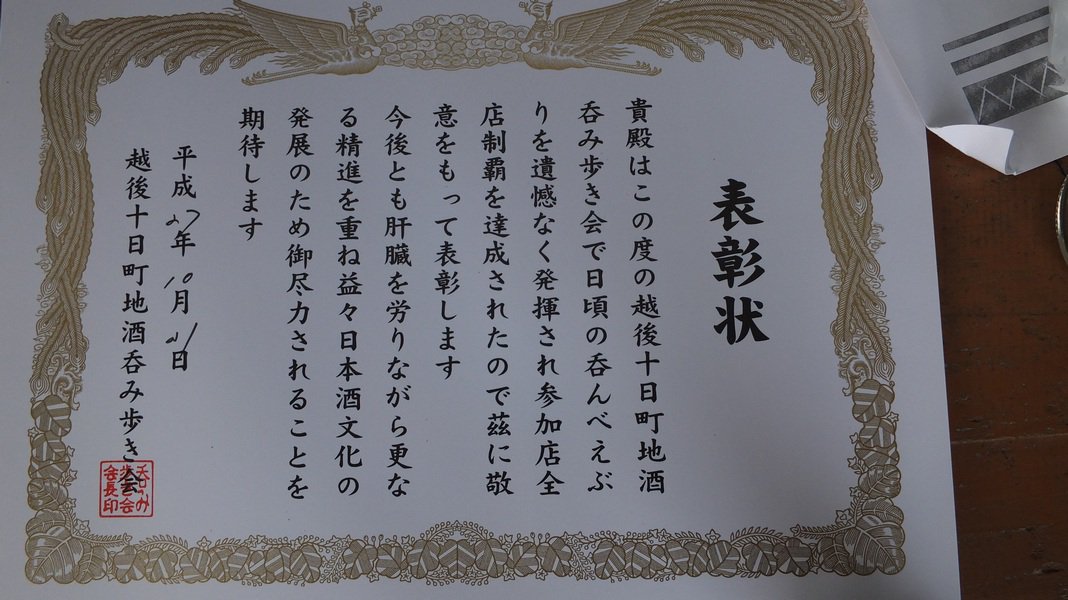 表彰状
貴殿はこの度の越後十日町地酒
呑み歩き会で日頃の呑んべえぶ
りを遺憾なく発揮され参加店全
店制覇を達成されたので茲に敬
意をもって表彰します
今後とも肝臓を労りながら更な
る精進を重ね益々日本酒文化の
発展のため御尽力されることを
期待します
平成27年10月21日
越後十日町地酒呑み歩き会
呑み
歩き会
会長印